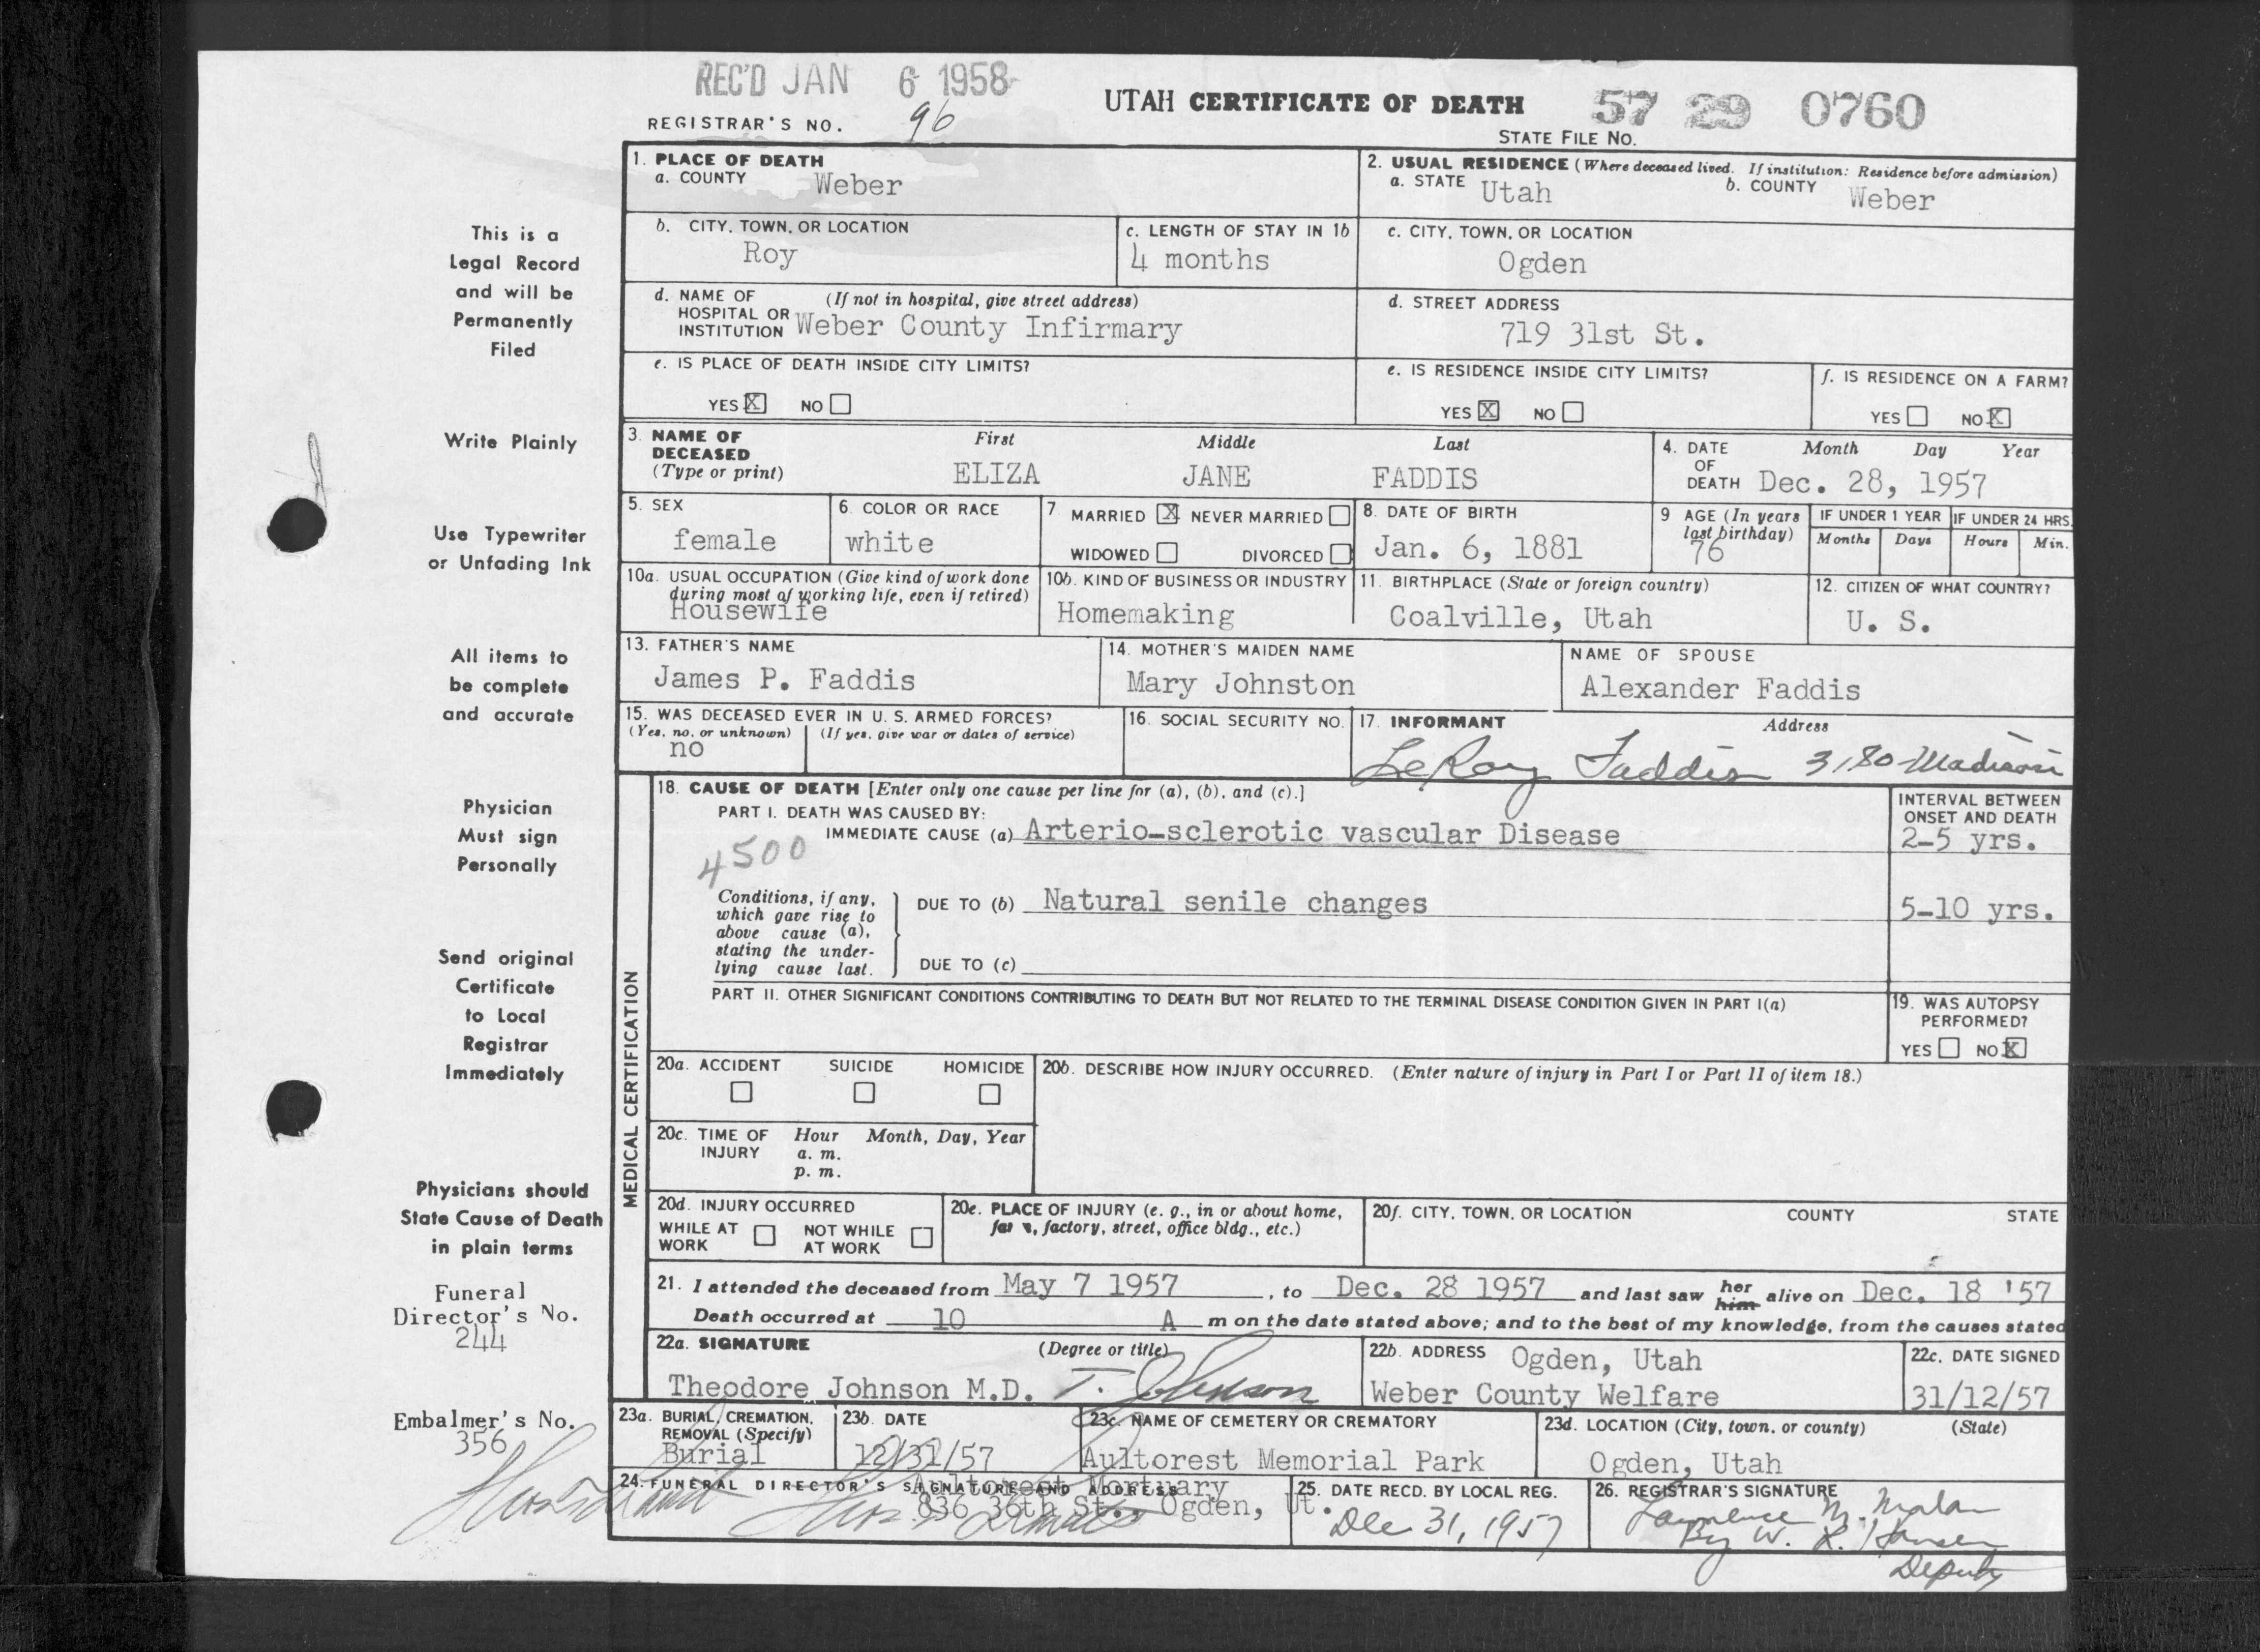 REC'D JAN 6 1958
REGISTRAR'S NO. 96
UTAH CERTIFICATE OF DEATH
57 29 0760
STATE FILE NO.
This is a
Legal Record
and will be
Permanently
Filed
Write Plainly
Use Typewriter
or Unfading Ink
All items to
be complete
and accurate
Physician
Must sign
Personally
Send original
Certificate
to Local
Registrar
Immediately
Physicians should
State Cause of Death
in plain terms
Funeral
Director's No.
244
Embalmer's No.
356
1. PLACE OF DEATH
a. COUNTY Weber
2. USUAL RESIDENCE (Where deceased lived. If institution: Residence before admission)
a. STATE Utah b. COUNTY Weber
b. CITY, TOWN, OR LOCATION
Roy
c. LENGTH OF STAY IN 1b
4 months
c. CITY, TOWN, OR LOCATION
Ogden
d. NAME OF (If not in hospital, give street address)
HOSPITAL OR
INSTITUTION Weber County Infirmary
d. STREET ADDRESS
719 31st St.
e. IS PLACE OF DEATH INSIDE CITY LIMITS?
YES X NO
e. IS RESIDENCE INSIDE CITY LIMITS?
YES X NO
f. IS RESIDENCE ON A FARM?
YES NO X
3. NAME OF First Middle Last
DECEASED
(Type or print) ELIZA JANE FADDIS
4. DATE Month Day Year
OF
DEATH Dec. 28, 1957
5. SEX
female
6. COLOR OR RACE
white
7 MARRIED X NEVER MARRIED
WIDOWED DIVORCED
8. DATE OF BIRTH
Jan. 6, 1881
9 AGE (In years
last birthday)
76
IF UNDER 1 YEAR IF UNDER 24 HRS.
Months Days Hours Min.
10a. USUAL OCCUPATION (Give kind of work done
during most of working life, even if retired)
Housewife
10b. KIND OF BUSINESS OR INDUSTRY
Homemaking
11. BIRTHPLACE (State or foreign country)
Coalville, Utah
12. CITIZEN OF WHAT COUNTRY?
U. S.
13. FATHER'S NAME
James P. Faddis
14. MOTHER'S MAIDEN NAME
Mary Johnston
NAME OF SPOUSE
Alexander Faddis
15. WAS DECEASED EVER IN U. S. ARMED FORCES?
(Yes, no, or unknown) (If yes, give war or dates of service)
no
16. SOCIAL SECURITY NO.
17. INFORMANT Address
LeRoy Faddis 3180 Madison
MEDICAL CERTIFICATION
18. CAUSE OF DEATH [Enter only one cause per line for (a), (b), and (c).]
PART I. DEATH WAS CAUSED BY:
IMMEDIATE CAUSE (a) Arterio-sclerotic vascular Disease
4500
INTERVAL BETWEEN
ONSET AND DEATH
2-5 yrs.
Conditions, if any,
which gave rise to
above cause (a),
stating the under-
lying cause last.
DUE TO (b) Natural senile changes
5-10 yrs.
DUE TO (c)
PART II. OTHER SIGNIFICANT CONDITIONS CONTRIBUTING TO DEATH BUT NOT RELATED TO THE TERMINAL DISEASE CONDITION GIVEN IN PART I(a)
19. WAS AUTOPSY
PERFORMED?
YES NO X
20a. ACCIDENT SUICIDE HOMICIDE
20b. DESCRIBE HOW INJURY OCCURRED. (Enter nature of injury in Part I or Part II of item 18.)
20c. TIME OF Hour Month, Day, Year
INJURY a. m.
p. m.
20d. INJURY OCCURRED
WHILE AT NOT WHILE
WORK AT WORK
20e. PLACE OF INJURY (e. g., in or about home,
farm, factory, street, office bldg., etc.)
20f. CITY, TOWN, OR LOCATION COUNTY STATE
21. I attended the deceased from May 7 1957, to Dec. 28 1957 and last saw her him alive on Dec. 18 '57
Death occurred at 10 A m on the date stated above; and to the best of my knowledge, from the causes stated
22a. SIGNATURE (Degree or title)
Theodore Johnson M.D. T. Johnson
22b. ADDRESS Ogden, Utah
Weber County Welfare
22c. DATE SIGNED
31/12/57
23a. BURIAL, CREMATION,
REMOVAL (Specify)
Burial
23b. DATE
12/31/57
23c. NAME OF CEMETERY OR CREMATORY
Aultorest Memorial Park
23d. LOCATION (City, town, or county) (State)
Ogden, Utah
24. FUNERAL DIRECTOR'S SIGNATURE AND ADDRESS
Aultorest Mortuary
836 36th St., Ogden, Ut.
25. DATE RECD. BY LOCAL REG.
Dec 31, 1957
26. REGISTRAR'S SIGNATURE
Lawrence M. Malan
By W. R. Hansen
Deputy